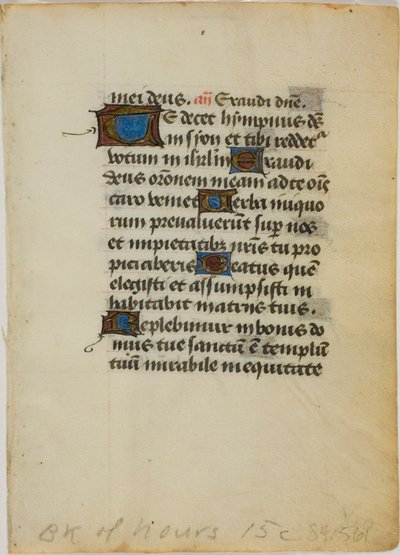 mei deus. añ Exaudi dñe.
TE decet hympnus dẽ
in syon et tibi reddetᵃ
votum in ihrlm Exaudi
deus orõnem meam ad te oĩs
caro veniet Verba iniquo
rum prevaluerunt suꝑ nos
et impietatibꝫ nr̃is tu pro
piciaberis Beatus quẽ
elegisti et assumpsisti in
habitabit in atriis tuis.
Replebimur in bonis do
mus tue sanctũ ẽ templũ
tuũ mirabile in equitate
BK of hours 15c